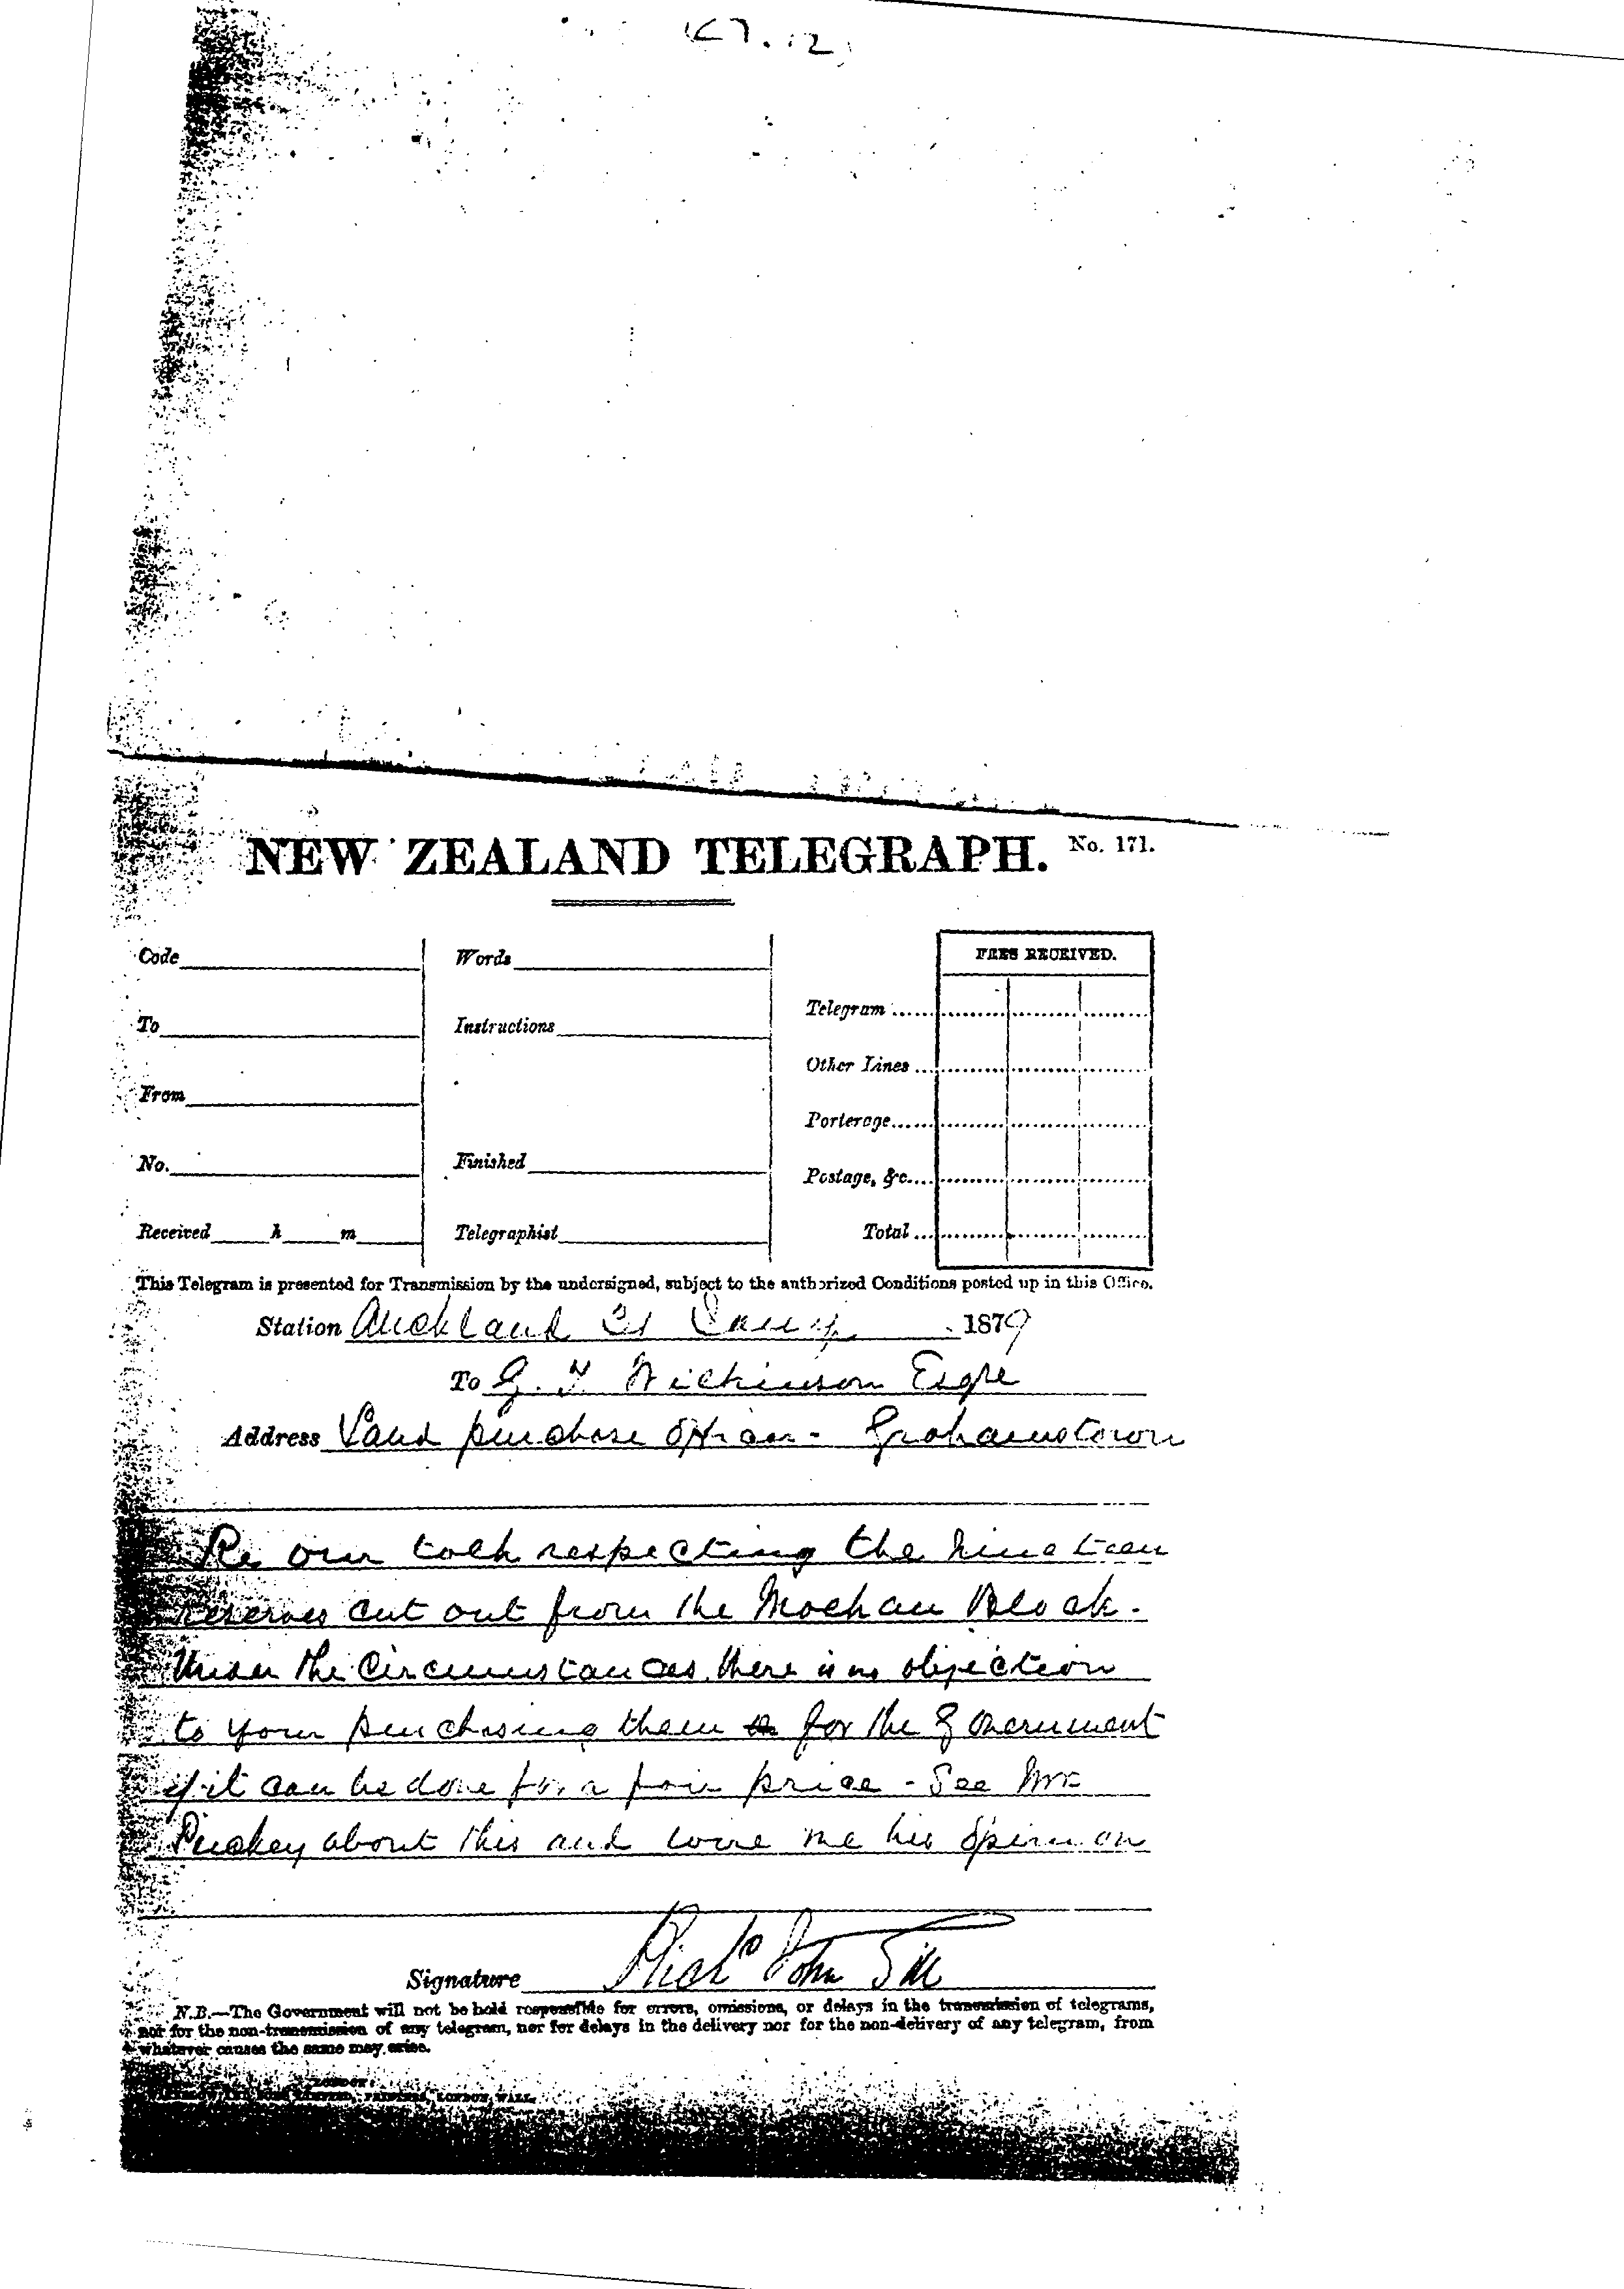 NEW ZEALAND TELEGRAPH. No. 171.
Code
Words
FEES RECEIVED.
Telegram
To
Instructions
Other Lines
From
Porterage
No.
Finished
Postage, &c.
Received h m
Telegraphist
Total
This Telegram is presented for Transmission by the undersigned, subject to the authorized Conditions posted up in this Office.
Station Auckland 21 1879
To G. T. Wilkinson Esqre
Address Land purchase Officer - Grahamstown
Re our talk respecting the nineteen
reserves cut out from the Moehau Block.
Under the Circumstances there is no objection
to your purchasing them for the Government
if it can be done for a fair price - See Mr
Puckey about this and wire me his opinion
Signature Richd John Gill
N.B.—The Government will not be held responsible for errors, omissions, or delays in the transmission of telegrams,
nor for the non-transmission of any telegram, nor for delays in the delivery nor for the non-delivery of any telegram, from
whatever causes the same may arise.
LONDON:
LIMITED, PRINTERS, LONDON WALL.